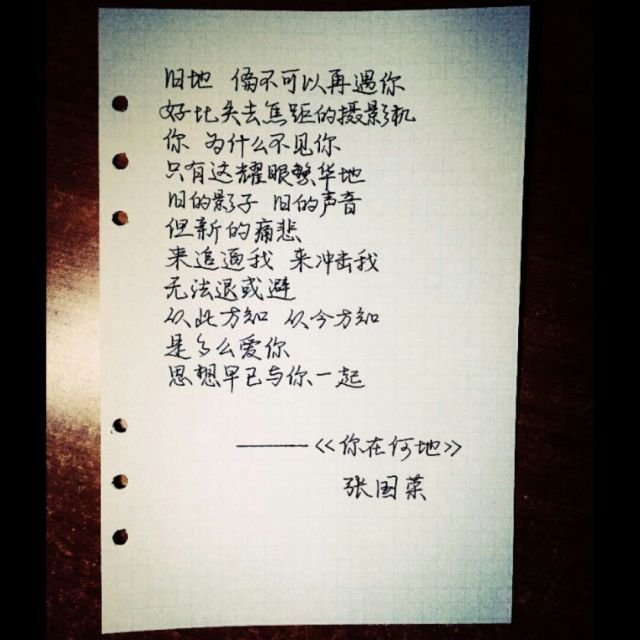 旧地 偏不可以再遇你
好比失去焦距的摄影机
你 为什么不见你
只有这耀眼繁华地
旧的影子 旧的声音
但新的痛悲
来追逼我 来冲击我
无法退或避
从此方知 从今方知
是多么爱你
思想早已与你一起
——《你在何地》
张国荣